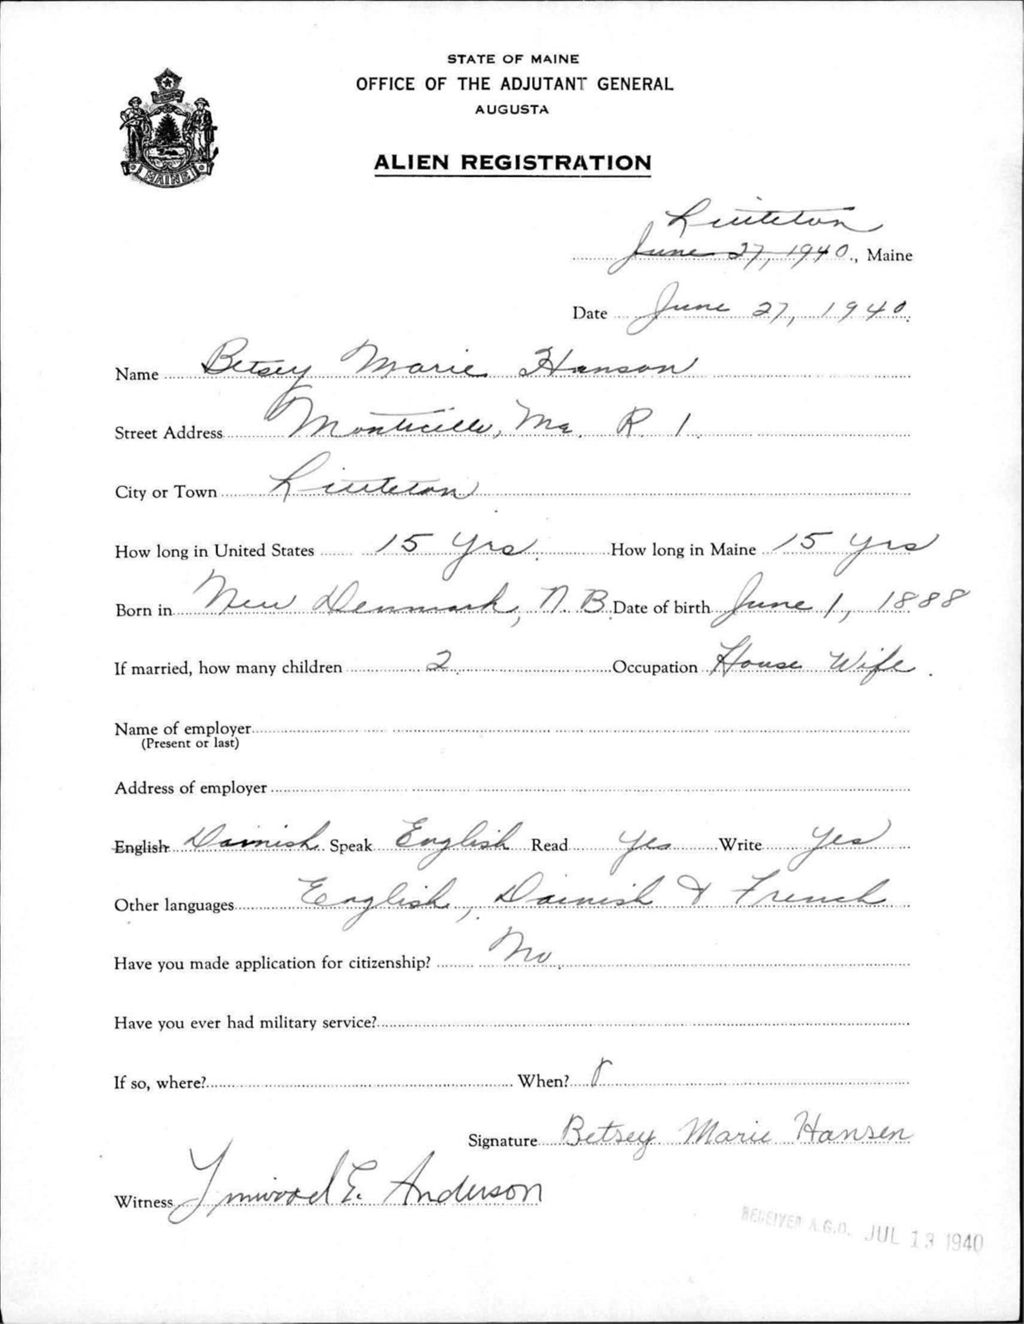 STATE OF MAINE
OFFICE OF THE ADJUTANT GENERAL
AUGUSTA
ALIEN REGISTRATION
MAINE
Littleton
June 27, 1940, Maine
Date June 27, 1940
Name Betsey Marie Hanson
Street Address Monticello, Me. R 1
City or Town Littleton
How long in United States 15 Yrs. How long in Maine 15 Yrs
Born in New Denmark, N.B. Date of birth June 1, 1888
If married, how many children 2 Occupation House Wife.
Name of employer
(Present or last)
Address of employer
English Dainish Speak English Read Yes Write Yes
Other languages English, Dainish & French
Have you made application for citizenship? No
Have you ever had military service?
If so, where? When?
Signature Betsey Marie Hansen
Witness Linwood E. Anderson
RECEIVED A.G.O. JUL 13 1940